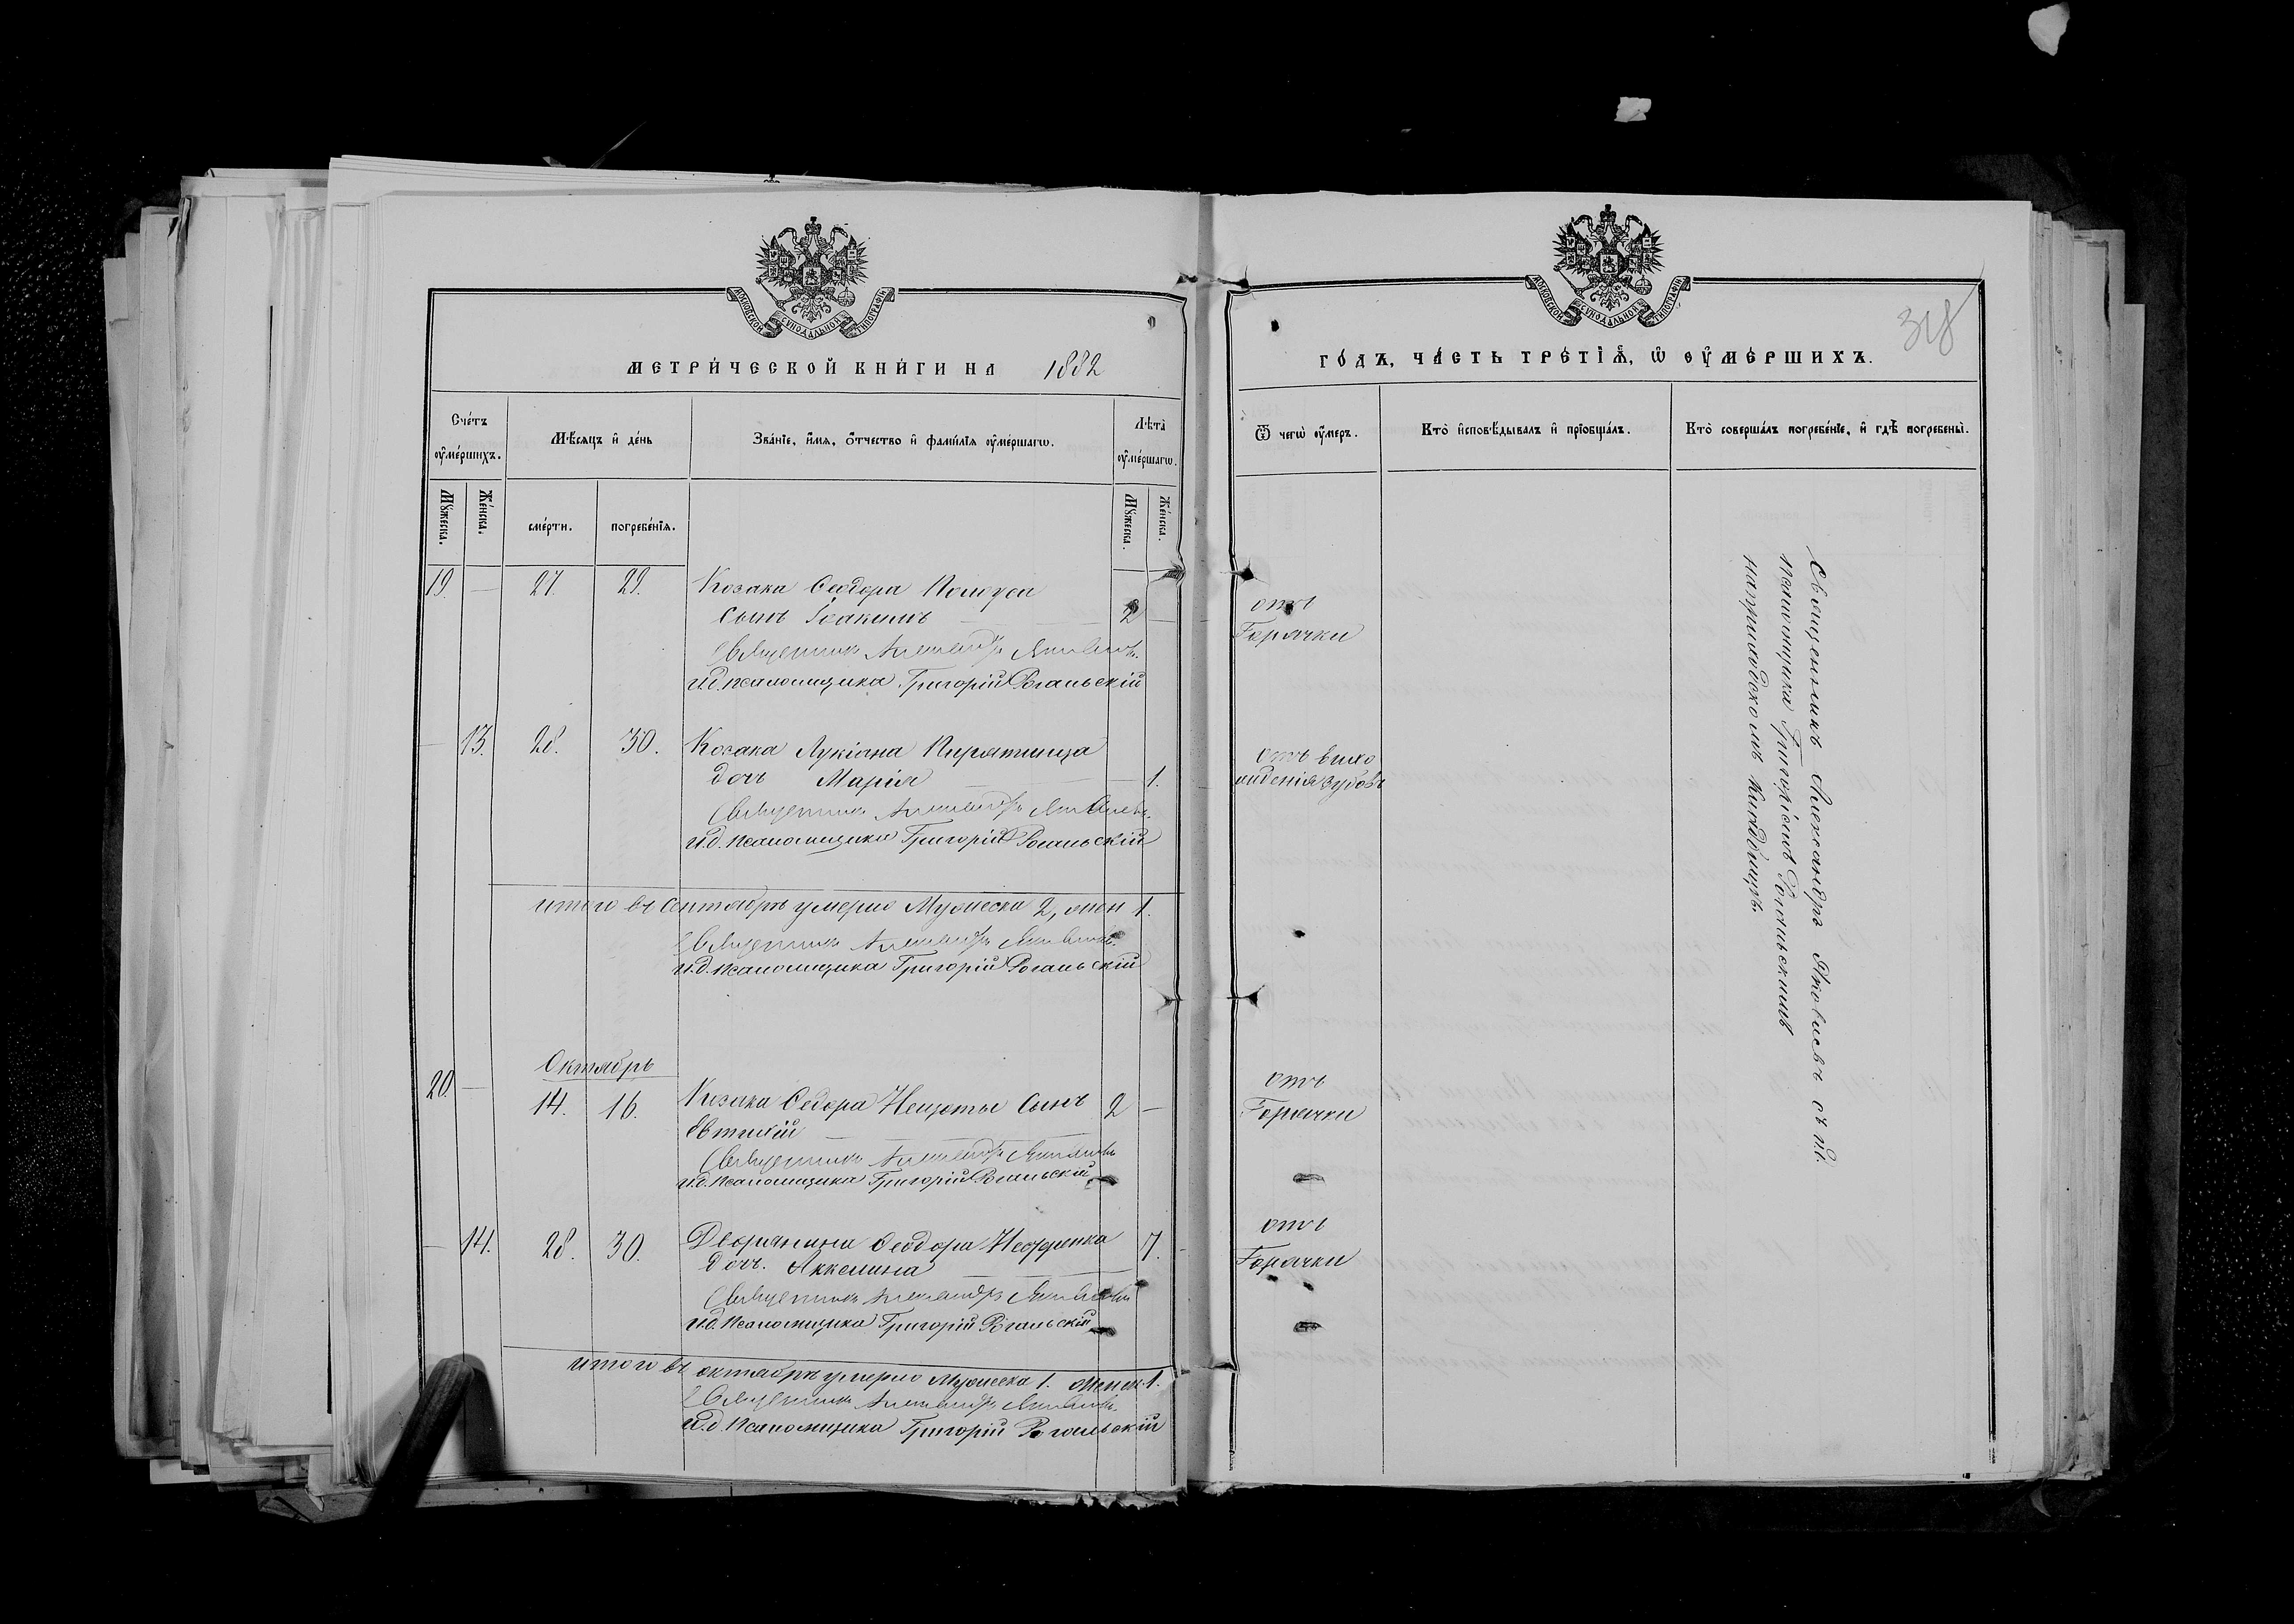 МОСКОВСКОЙ СѴНОДАЛЬНОЙ ТИПОГРАФІИ
МЕТРИ́ЧЕСКОЙ КНИ́ГИ НА 1882
Сче́тъ ᲂу҆ме́ршихъ.
Мѣ́сяцъ и҆ де́нь
Зва́нїе, и҆́мя, ѻ҆́тчество и҆ фами́лїя ᲂу҆ме́ршагѡ.
Лѣ́та ᲂу҆ме́ршагѡ.
Мꙋ́жеска.
Же́нска.
сме́рти.
погребе́нїя.
Мꙋ́жеска.
Же́нска.
19. — 27. 29. Козака Ѳеодора
сынъ Іоакимъ — 2 —
Священникъ Александръ Яковлевъ
И.д. псаломщика Григорій Рогальскій
— 13. 28. 30. Козака Лукіана Пирятинца
дочь Марія — 1.
Священникъ Александръ Яковлевъ
И.д. псаломщика Григорій Рогальскій
итого въ Сентябрѣ умерло Мужеска 2, жен 1.
Священникъ Александръ Яковлевъ
И.д. псаломщика Григорій Рогальскій
Октябрь
20. — 14. 16. Козака Ѳедора Нещоты Сынъ 2 —
Евтихій —
Священникъ Александръ Яковлевъ
И.д. псаломщика Григорій Рогальскій
— 14. 28. 30. Дворянина Ѳеодора 7.
дочь.
Священникъ Александръ Яковлевъ
И.д. псаломщика Григорій Рогальскій
итого въ октябрѣ умерло Мужеска 1. женск. 1.
Священникъ Александръ Яковлевъ
И.д. псаломщика Григорій Рогальскій
МОСКОВСКОЙ СѴНОДАЛЬНОЙ ТИПОГРАФІИ
318
ГО́ДЪ, ЧА́СТЬ ТРЕ́ТЇѦ, Ѡ҆ ОУ҆МЕ́РШИХЪ.
Ѿ чегѡ̀ ᲂу҆́меръ.
Кто̀ и҆сповѣ́дывалъ и҆ прїобща́лъ.
Кто̀ соверша́лъ погребе́нїе, и҆ гдѣ̀ погребены̀.
отъ
Горячки
отъ выхо
жденія зубовъ
отъ
Горячки
отъ
Горячки
Священникъ Александръ Яковлевъ съ И.д.
псаломщика Григоріемъ Рогальскимъ
на приходскомъ кладбищѣ.